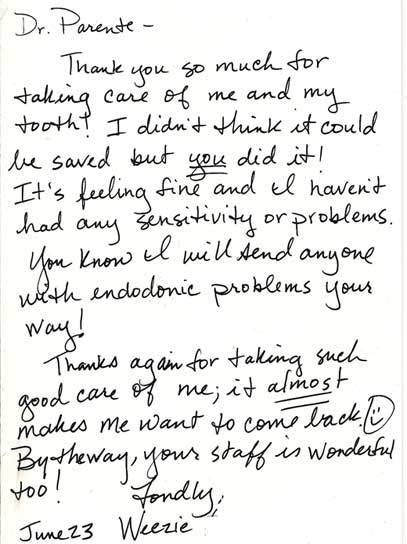 Dr. Parente -
Thank you so much for
taking care of me and my
tooth! I didn't think it could
be saved but you did it!
It's feeling fine and I haven't
had any sensitivity or problems.
You know I will send anyone
with endodonic problems your
way!
Thanks again for taking such
good care of me; it almost
makes me want to come back. ☺
By the way, your staff is wonderful
too! Fondly,
June 23 Weezie